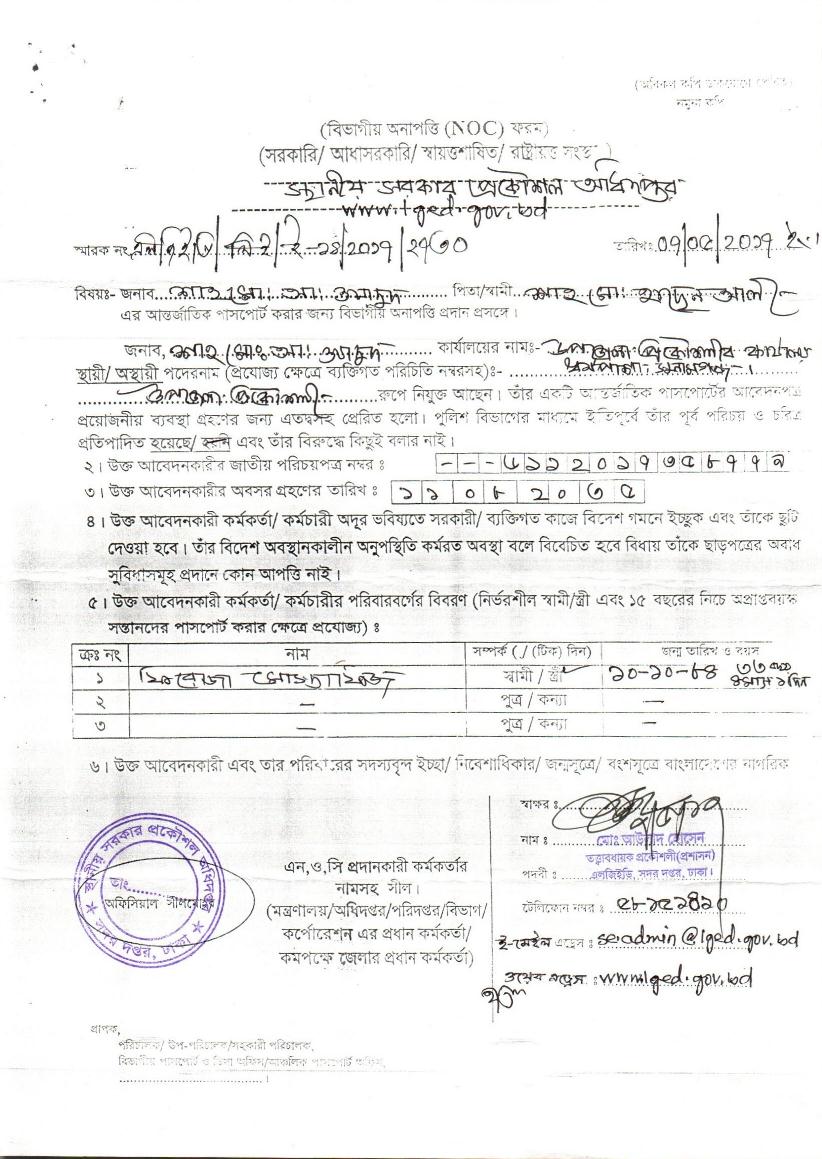 নমুনা কপি
(বিভাগীয় অনাপত্তি (NOC) ফরম)
(সরকারি/ আধাসরকারি/ স্বায়ত্তশাষিত/ রাষ্ট্রায়ত্ত সংস্থা)
স্থানীয় সরকার প্রকৌশল অধিদপ্তর
www.lged.gov.bd
স্মারক নং তারিখঃ ০৭/০৫/২০১৭
বিষয়ঃ- জনাব পিতা/স্বামী
এর আন্তর্জাতিক পাসপোর্ট করার জন্য বিভাগীয় অনাপত্তি প্রদান প্রসঙ্গে ।
জনাব, কার্যালয়ের নামঃ- উপজেলা প্রকৌশলীর কার্যালয়
স্থায়ী/ অস্থায়ী পদেরনাম (প্রযোজ্য ক্ষেত্রে ব্যক্তিগত পরিচিতি নম্বরসহ)ঃ-
উপজেলা প্রকৌশলী রুপে নিযুক্ত আছেন। তাঁর একটি আন্তর্জাতিক পাসপোর্টের আবেদনপত্র
প্রয়োজনীয় ব্যবস্থা গ্রহণের জন্য এতদ্বসহ প্রেরিত হলো। পুলিশ বিভাগের মাধ্যমে ইতিপূর্বে তাঁর পূর্ব পরিচয় ও চরিত্র
প্রতিপাদিত হয়েছে/ হয়নি এবং তাঁর বিরুদ্ধে কিছুই বলার নাই।
২। উক্ত আবেদনকারীর জাতীয় পরিচয়পত্র নম্বর ঃ - - - ৬১১২০১৭৫৮৭৭৯
৩। উক্ত আবেদনকারীর অবসর গ্রহণের তারিখ ঃ ১১০৮২০৩৫
৪। উক্ত আবেদনকারী কর্মকর্তা/ কর্মচারী অদূর ভবিষ্যতে সরকারী/ ব্যক্তিগত কাজে বিদেশ গমনে ইচ্ছুক এবং তাঁকে ছুটি
দেওয়া হবে। তাঁর বিদেশ অবস্থানকালীন অনুপস্থিতি কর্মরত অবস্থা বলে বিবেচিত হবে বিধায় তাঁকে ছাড়পত্রের অবাধ
সুবিধাসমূহ প্রদানে কোন আপত্তি নাই।
৫। উক্ত আবেদনকারী কর্মকর্তা/ কর্মচারীর পরিবারবর্গের বিবরণ (নির্ভরশীল স্বামী/স্ত্রী এবং ১৫ বছরের নিচে অপ্রাপ্তবয়স্ক
সন্তানদের পাসপোর্ট করার ক্ষেত্রে প্রযোজ্য) ঃ
ক্রঃ নং নাম সম্পর্ক (./ (টিক) দিন) জন্ম তারিখ ও বয়স
১ স্বামী / স্ত্রী ১০-১০-৮৪
২ — পুত্র / কন্যা —
৩ — পুত্র / কন্যা —
৬। উক্ত আবেদনকারী এবং তার পরিবারের সদস্যবৃন্দ ইচ্ছা/ নিবেশাধিকার/ জন্মসূত্রে/ বংশসূত্রে বাংলাদেশের নাগরিক
স্থানীয় সরকার প্রকৌশল অধিদপ্তর
তাং
অফিসিয়াল সীলমোহর
সদর দপ্তর, ঢাকা
এন,ও,সি প্রদানকারী কর্মকর্তার
নামসহ সীল।
(মন্ত্রণালয়/অধিদপ্তর/পরিদপ্তর/বিভাগ/
কর্পোরেশন এর প্রধান কর্মকর্তা/
কমপক্ষে জেলার প্রধান কর্মকর্তা)
স্বাক্ষর ঃ
নাম ঃ মোঃ হোসেন
তত্ত্বাবধায়ক প্রকৌশলী(প্রশাসন)
পদবী ঃ এলজিইডি, সদর দপ্তর, ঢাকা।
টেলিফোন নম্বর ঃ
ই-মেইল এড্রেস ঃ seadmin@lged.gov.bd
ওয়েব এড্রেস ঃ www.lged.gov.bd
প্রাপক,
পরিচালক/ উপ-পরিচালক/সহকারী পরিচালক,
বিভাগীয় পাসপোর্ট ও ভিসা অফিস/আঞ্চলিক পাসপোর্ট অফিস,